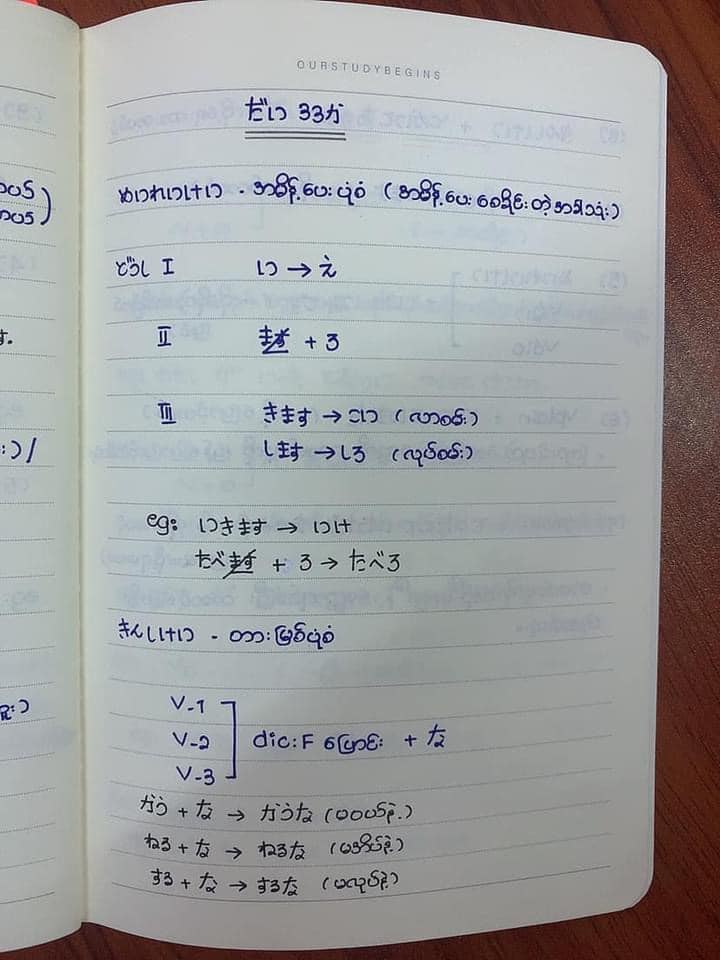 OURSTUDYBEGINS
だい 33か
めいれいけい - အမိန့်ပေးပုံစံ (အမိန့်ပေး စေခိုင်းတဲ့အသုံး)
どうし I い → え
II ます + ろ
III きます → こい (လာစမ်း)
します → しろ (လုပ်စမ်း)
eg: いきます → いけ
たべます + ろ → たべろ
きんしけい - တားမြစ်ပုံစံ
V-1
V-2 dic:F ပြောင်း + な
V-3
かう + な → かうな (မဝယ်နဲ့.)
ねる + な → ねるな (မအိပ်နဲ့)
する + な → するな (မလုပ်နဲ့)